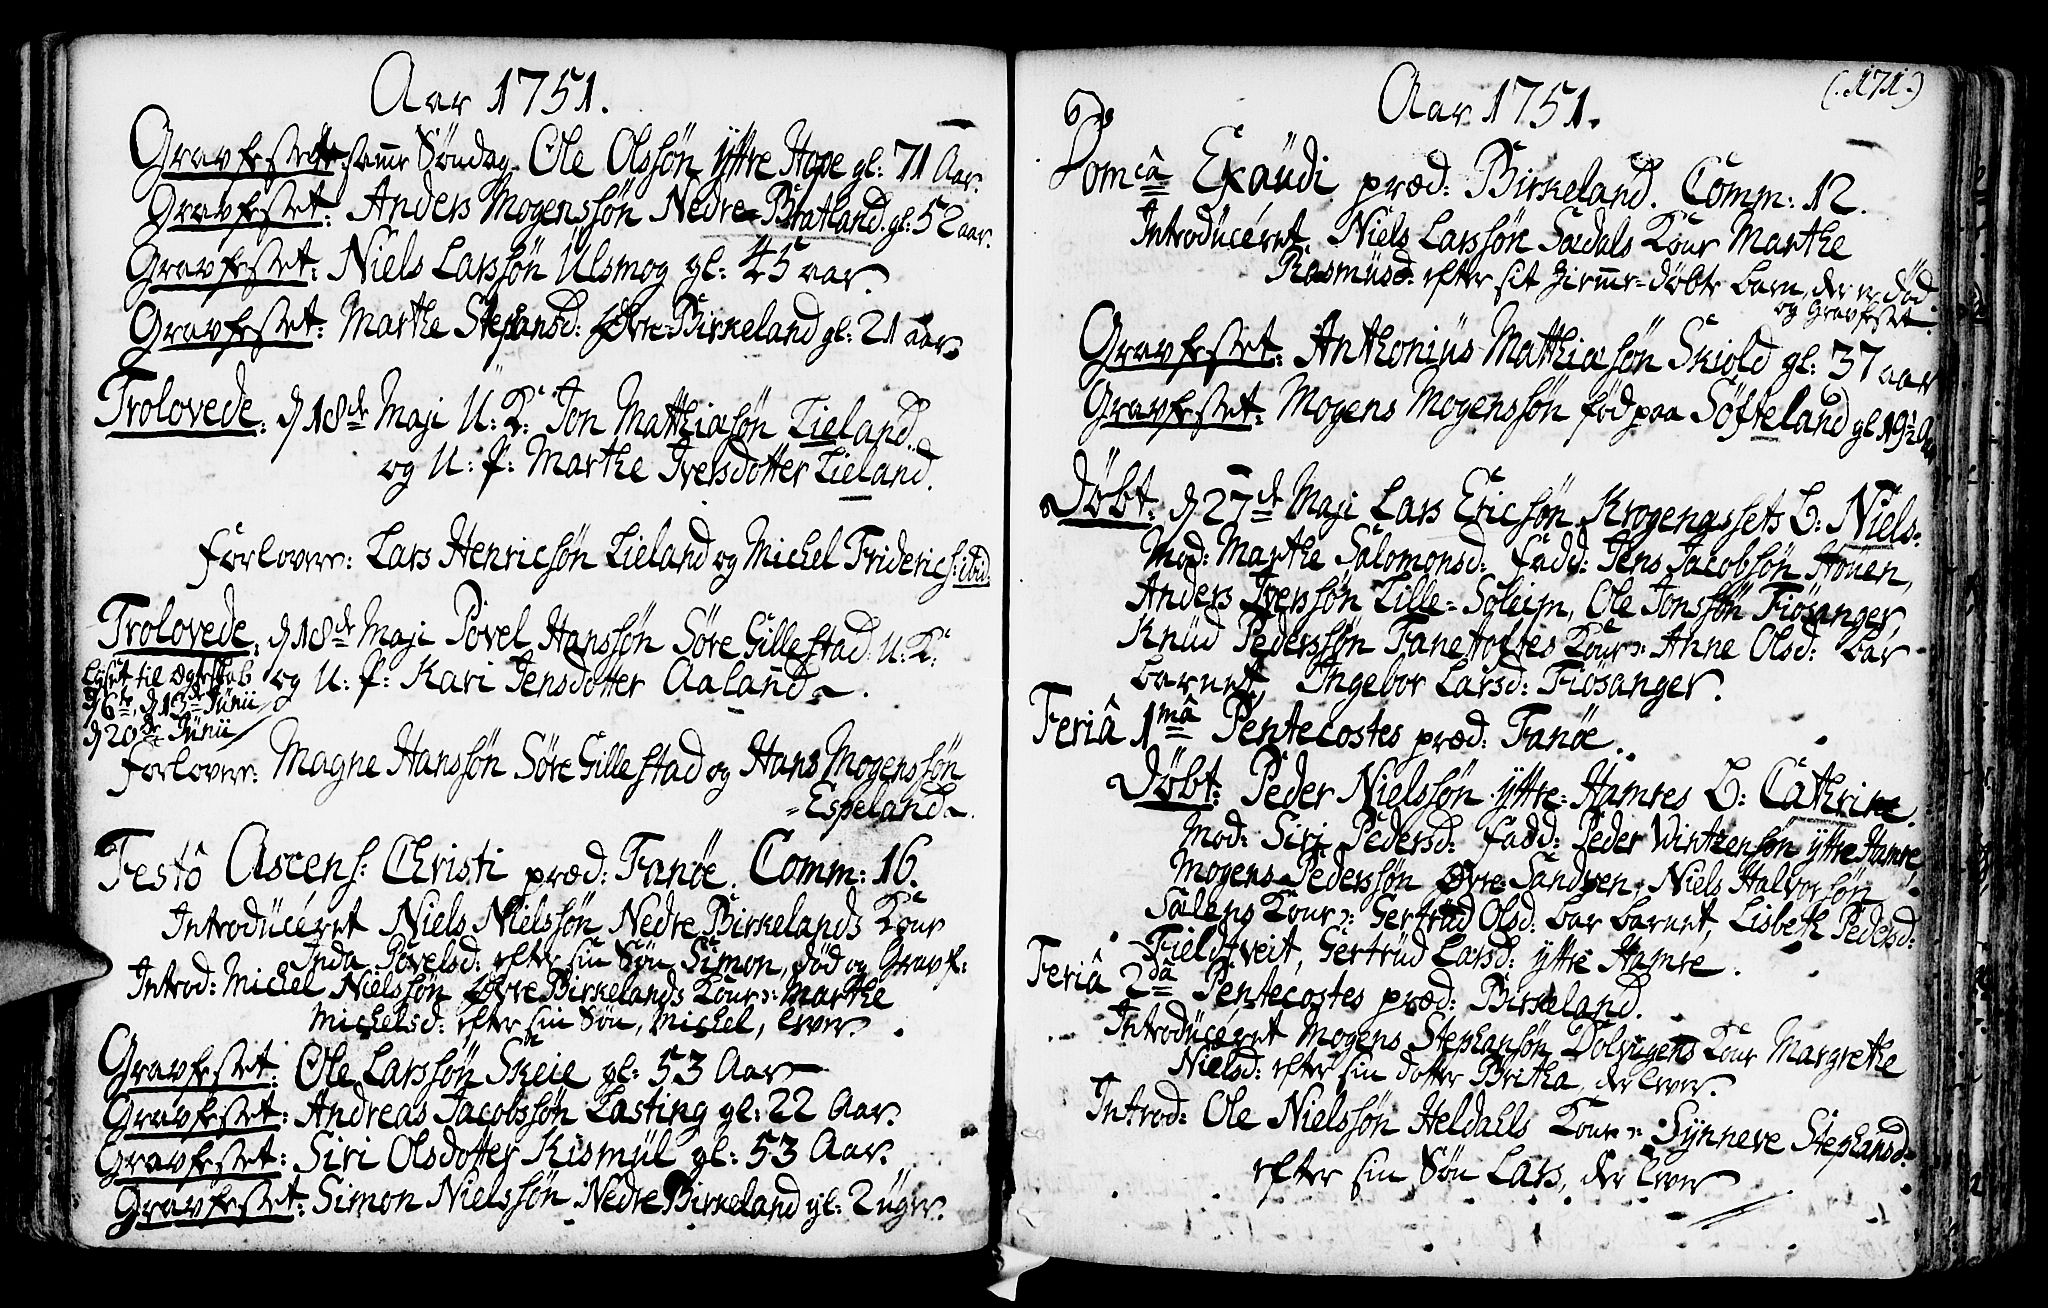 Aar 1751.
Gravfestet samme Søndag Ole Olssøn ÿttre Hope gl: 71 Aar.
Gravfestet: Anders Mogenssøn Nedre-Bratland gl: 52 aar.
Gravfestet: Niels Larssøn Ulsmog gl: 45 aar.
Gravfestet: Marthe Stephansd: Øvre-Birkeland gl: 21 aar.
Trolovede: d 18de Maji U: K: Jon Matthiasøn Lieland
og U: P: Marthe Iversdotter Lieland.
Forlovere: Lars Henricsøn Lieland og Michel Friderics: ibid.
Trolovede: d 18de Maji Povel Hanssøn Søre Gillestad U: K:
og U: P: Kari Jensdotter Aaland.
Lÿst til Ægteskab
d 6te, d 13de Junii
d 20de Junii
Forlovere: Magne Hanssøn Søre Gillestad og Hans Mogenssøn
Espeland.
Festô Ascens: Christi præd: Fanøe. Comm: 16.
Introducéret Niels Nielssøn Nedre Birkelands Kone
Inda Povelsd: efter sin Søn Simon, død og Gravf:
Introd: Michel Nielssøn Øvre Birkelands Kone: Marthe
Michelsd: efter sin Søn, Michel, lever.
Gravfestet: Ole Larssøn Skeie gl: 53 Aar
Gravfestet: Andreas Jacobssøn Lasting gl: 22 Aar.
Gravfestet: Siri Olsdotter Kismül gl: 53 Aar.
Gravfestet: Simon Nielssøn Nedre Birkeland gl: 2 uger.
(:171:)
Aar 1751.
Domcâ Exaudi præd: Birkeland. Comm: 12.
Introducéret Niels Larssøn Sædals Kone Marthe
Rasmusd: efter sit hjemme-døbte barn, der er død
og Gravfestet.
Gravfestet: Anthonius Matthiasøn Skiold gl: 37 aar
Gravfestet: Mogens Mogenssøn fød paa Søfteland gl 19½ Aar
Døbt: d 27de Maji Lars Ericsøn Krogengssets B: Niels:
Mod: Marthe Salomonsd: Fadd: Jens Jacobsøn Hoüen,
Anders Iverssøn Lille-Soleim, Ole Jonssøn Fiøsanger,
Knud Pederssøn Fanetoftes Kone: Anne Olsd: bar
barnet, Ingebor Larsd: Fiøsanger.
Feriâ 1mâ Pentecostes præd: Fanøe.
Døbt: Peder Nielssøn ÿttre-Hamres B: Cathrine.
Mod: Siri Pedersd: Fadd: Peder Vintzensøn ÿttre Hamre,
Mogens Pederssøn Øvre-Sandven, Niels Halvorsøn
Sælens Kone: Gertrud Olsd: bar barnet, Lisbeth Pedersd:
Fieldtveit, Gertrud Larsd: ÿttre Hamre.
Feriâ 2dâ Pentecostes præd: Birkeland.
Introducéret Mogens Stephansøn Dolvigens Kone Margrethe
Nielsd: efter sin dotter Britha, der lever.
Introd: Ole Nielssøn Heldahls Kone: Synneve Stephansd:
efter sin Søn Lars, der lever